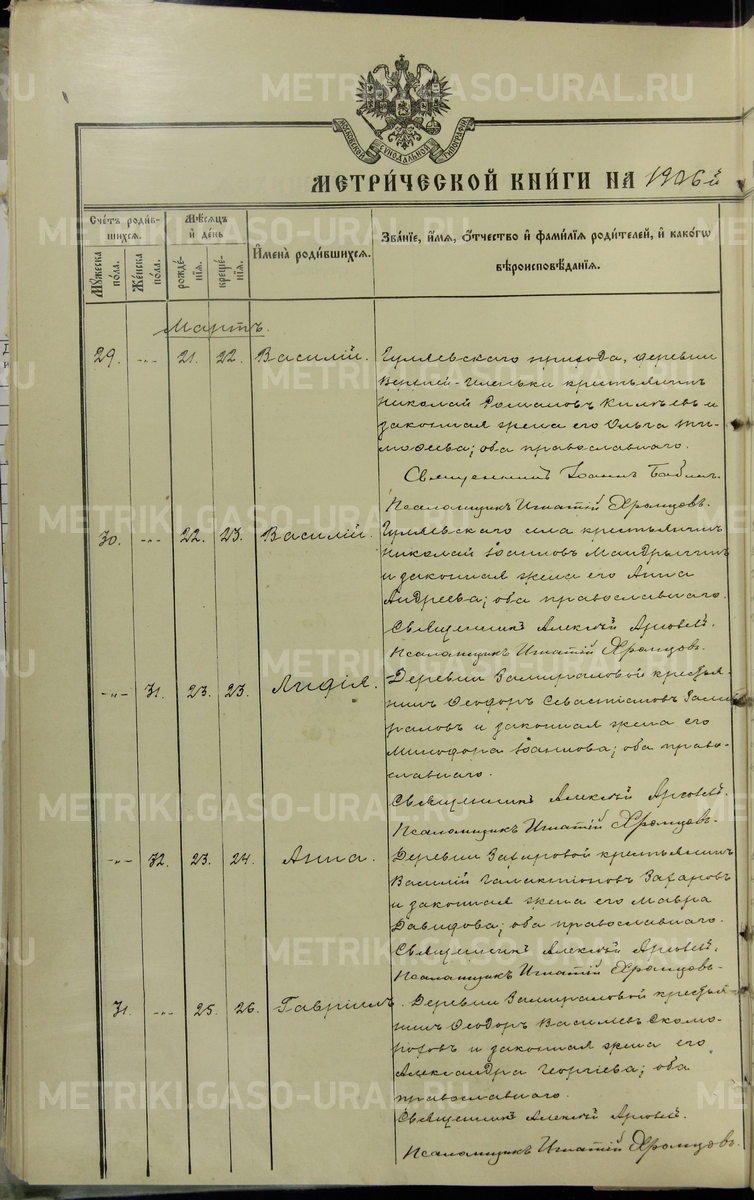 МОСКОВСКОЙ СУНОДАЛЬНОЙ ТИПОГРАФІИ
МЕТРИ́ЧЕСКОЙ КНИ́ГИ НА 1906й
Сче́тъ роди́в-
шихся.
Мѣ́сяцъ
и҆ де́нь
Мꙋ́жеска
по́ла.
Же́нска
по́ла.
рожде́-
нїя.
креще́-
нїя.
И҆мена̀ роди́вшихся.
Зва́нїе, и҆́мя, ѻ҆́тчество и҆ фами́лїя роди́телей, и҆ како́гѡ
вѣроисповѣ́данїя.
Мартъ.
29. -"- 21. 22. Василій. Гуляевскаго прихода, деревни
крестьянинъ
Николай Романовъ и
законная жена его Ольга Ти-
моѳеева; оба православнаго.
Священникъ Іоаннъ
Псаломщикъ Игнатій Хромцовъ.
30. -"- 22. 23. Василій. Гуляевскаго села крестьянинъ
Николай Іоанновъ
и законная жена его Анна
Андреева; оба православнаго.
Священникъ Алексѣй
Псаломщикъ Игнатій Хромцовъ.
-"- 31. 23. 23. Лидія. Деревни Замираловой крестья-
нинъ Ѳеодоръ Севастіановъ Зами-
раловъ и законная жена его
Минодора Іоаннова; оба право-
славнаго.
Священникъ Алексѣй
Псаломщикъ Игнатій Хромцовъ.
-"- 32. 23. 24. Анна. Деревни Захаровой крестьянинъ
Василій Галактіоновъ Захаровъ
и законная жена его Мавра
Давидова; оба православнаго.
Священникъ Алексѣй
Псаломщикъ Игнатій Хромцовъ.
31. -"- 25. 26. Гавріилъ. Деревни Замираловой крестья-
нинъ Ѳеодоръ Васильевъ Скомо-
роховъ и законная жена его
Александра Георгіева; оба
православнаго.
Священникъ Алексѣй
Псаломщикъ Игнатій Хромцовъ.
METRIKI.GASO-URAL.RU